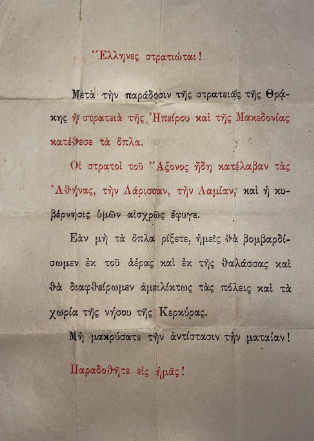 Ἕλληνες στρατιῶται!
Μετὰ τὴν παράδοσιν τῆς στρατειᾶς τῆς Θρᾴ-
κης ἡ στρατειὰ τῆς Ἠπείρου καὶ τῆς Μακεδονίας
κατέθεσε τὰ ὅπλα.
Οἱ στρατοὶ τοῦ Ἄξονος ἤδη κατέλαβαν τὰς
Ἀθήνας, τὴν Λάρισσαν, τὴν Λαμίαν, καὶ ἡ κυ-
βέρνησις ὑμῶν αἰσχρῶς ἔφυγε.
Ἐὰν μὴ τὰ ὅπλα ρίξετε, ἡμεῖς θὰ βομβαρδί-
σωμεν ἐκ τοῦ ἀέρας καὶ ἐκ τῆς θαλάσσας καὶ
θὰ διαφθείρωμεν ἀμειλίκτως τὰς πόλεις καὶ τὰ
χωρία τῆς νήσου τῆς Κερκύρας.
Μὴ μακρύσατε τὴν ἀντίστασιν τὴν ματαίαν!
Παραδοθῆτε εἰς ἡμᾶς!